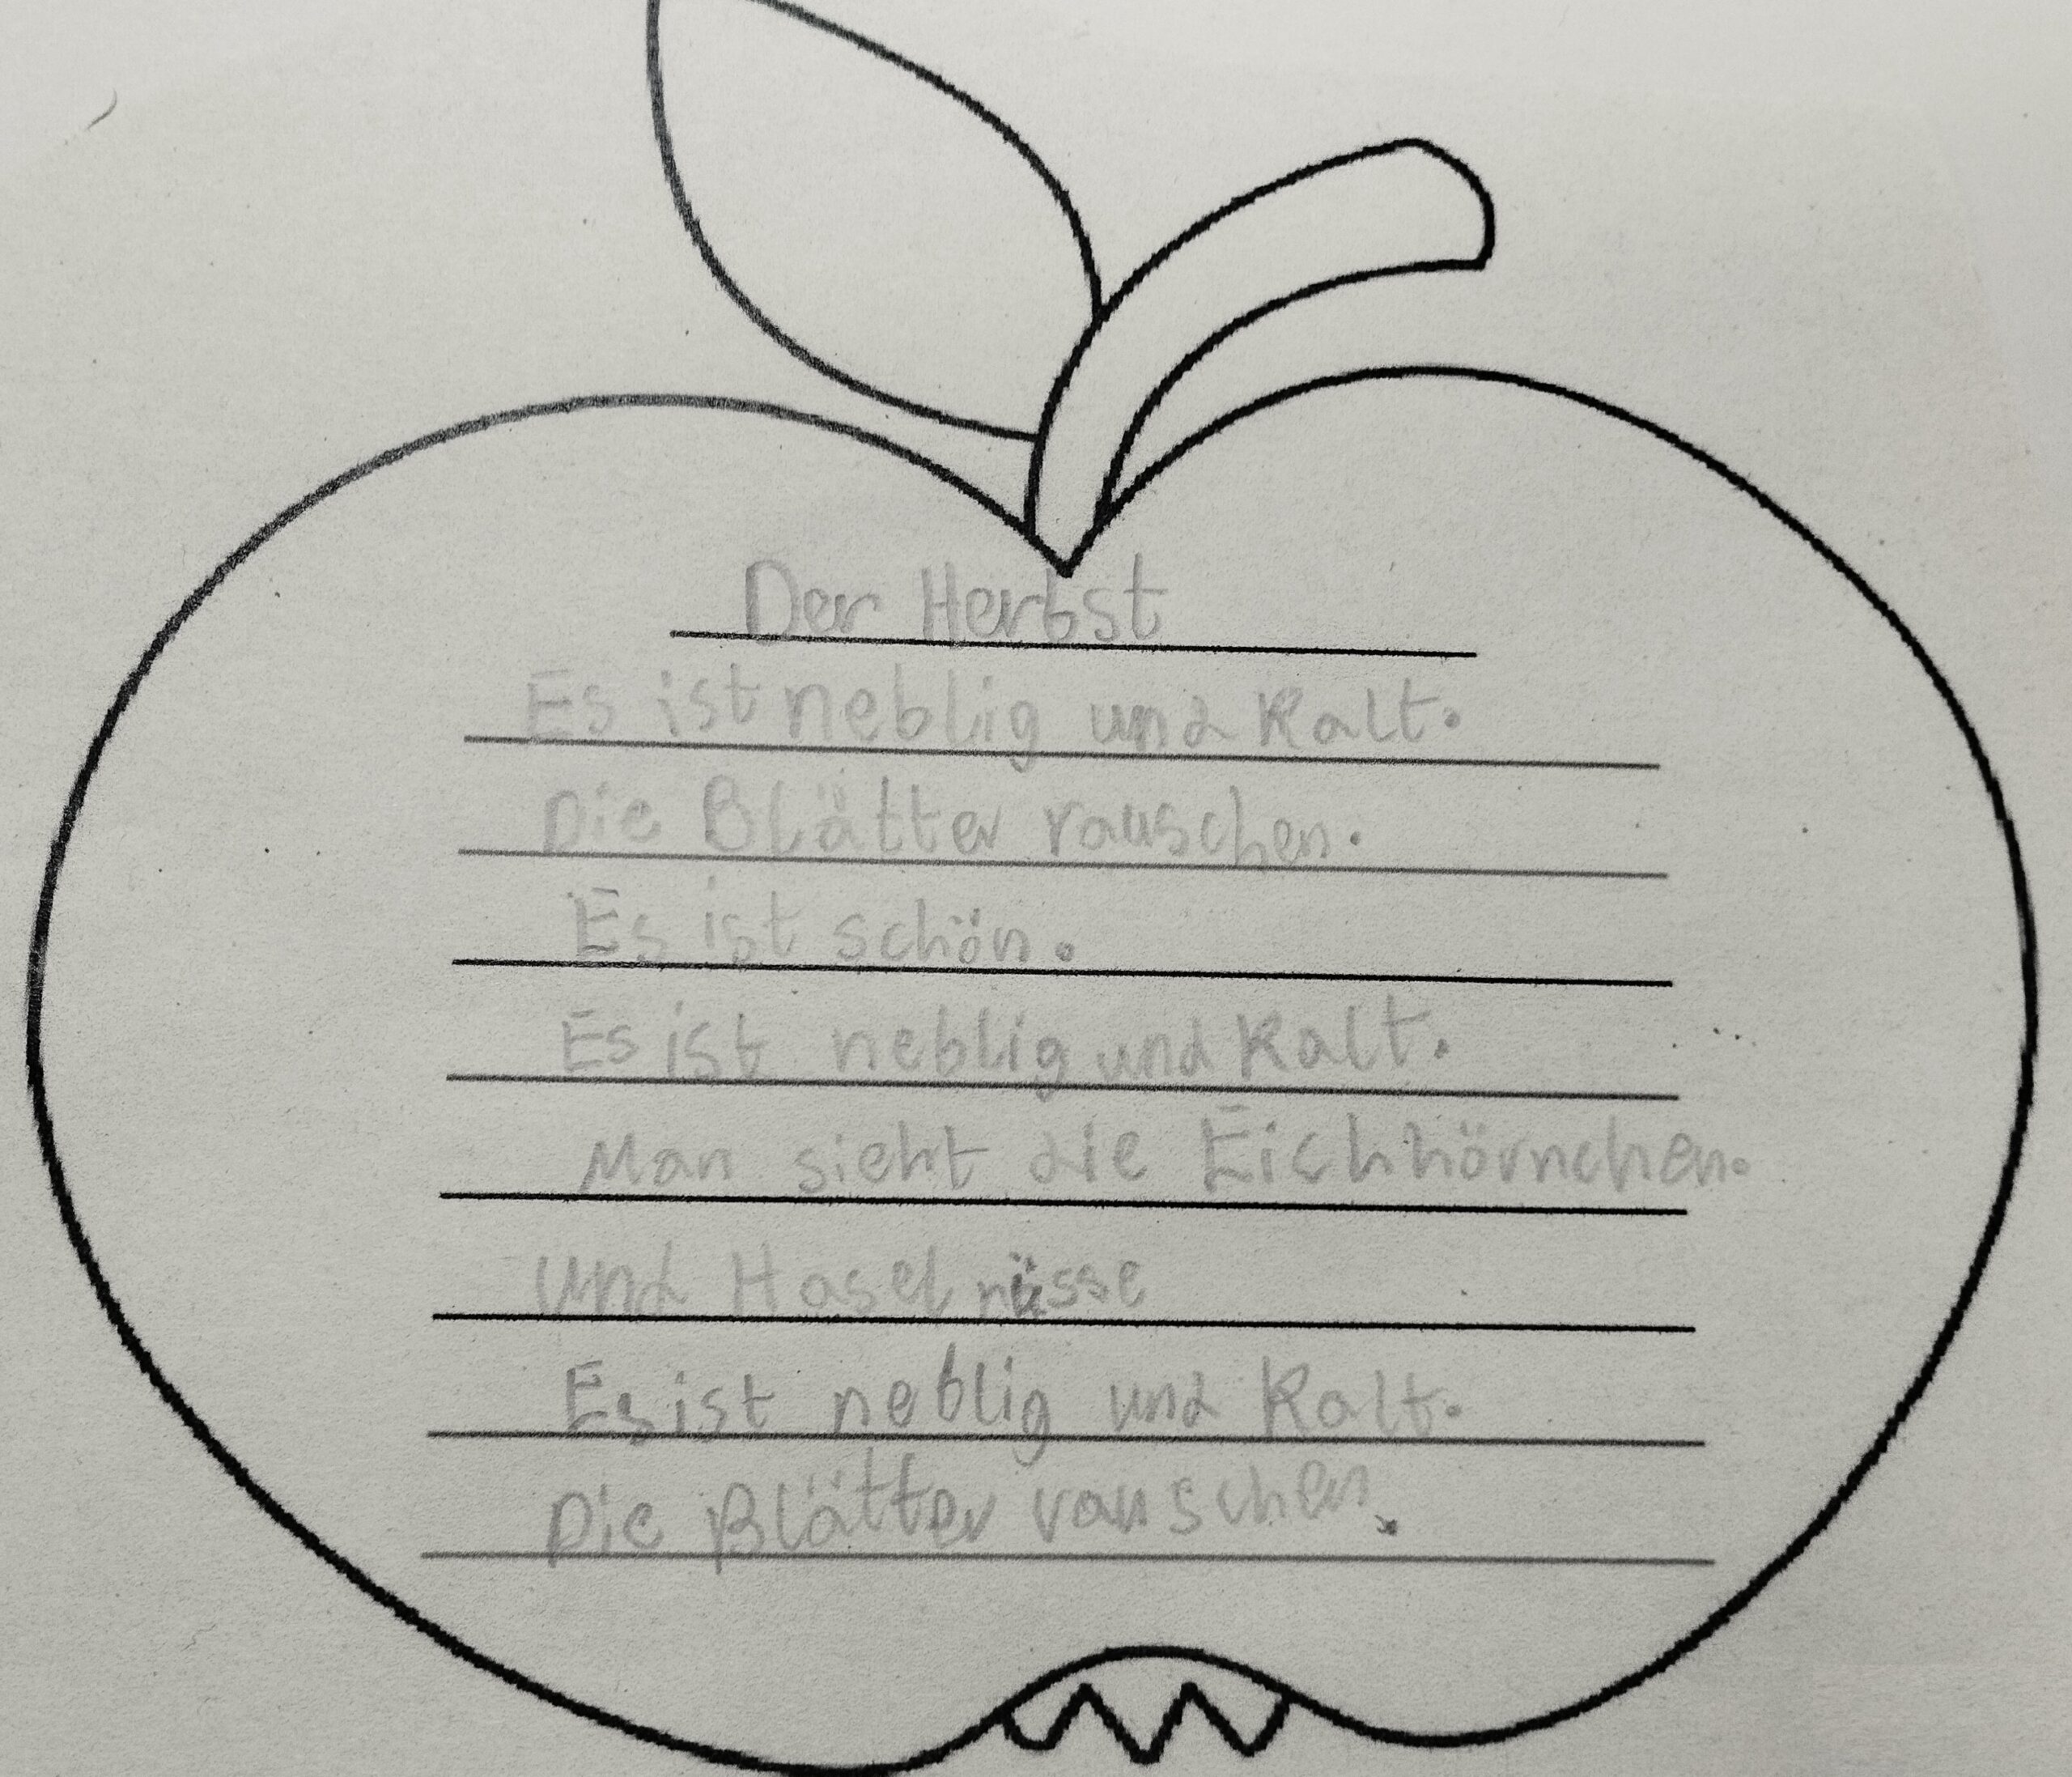 Der Herbst
Es ist neblig und kalt.
Die Blätter rauschen.
Es ist schön.
Es ist neblig und kalt.
Man sieht die Eichhörnchen.
und Haselnüsse
Es ist neblig und kalt.
Die Blätter rauschen.